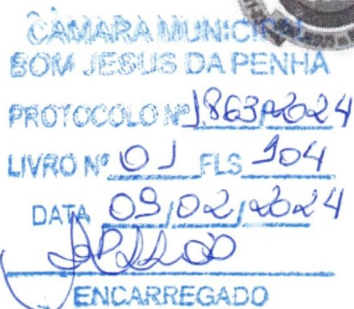 CÂMARA MUNICIPAL
BOM JESUS DA PENHA
PROTOCOLO Nº 1863/2024
LIVRO Nº 01 FLS 104
DATA 09/02/2024
ENCARREGADO